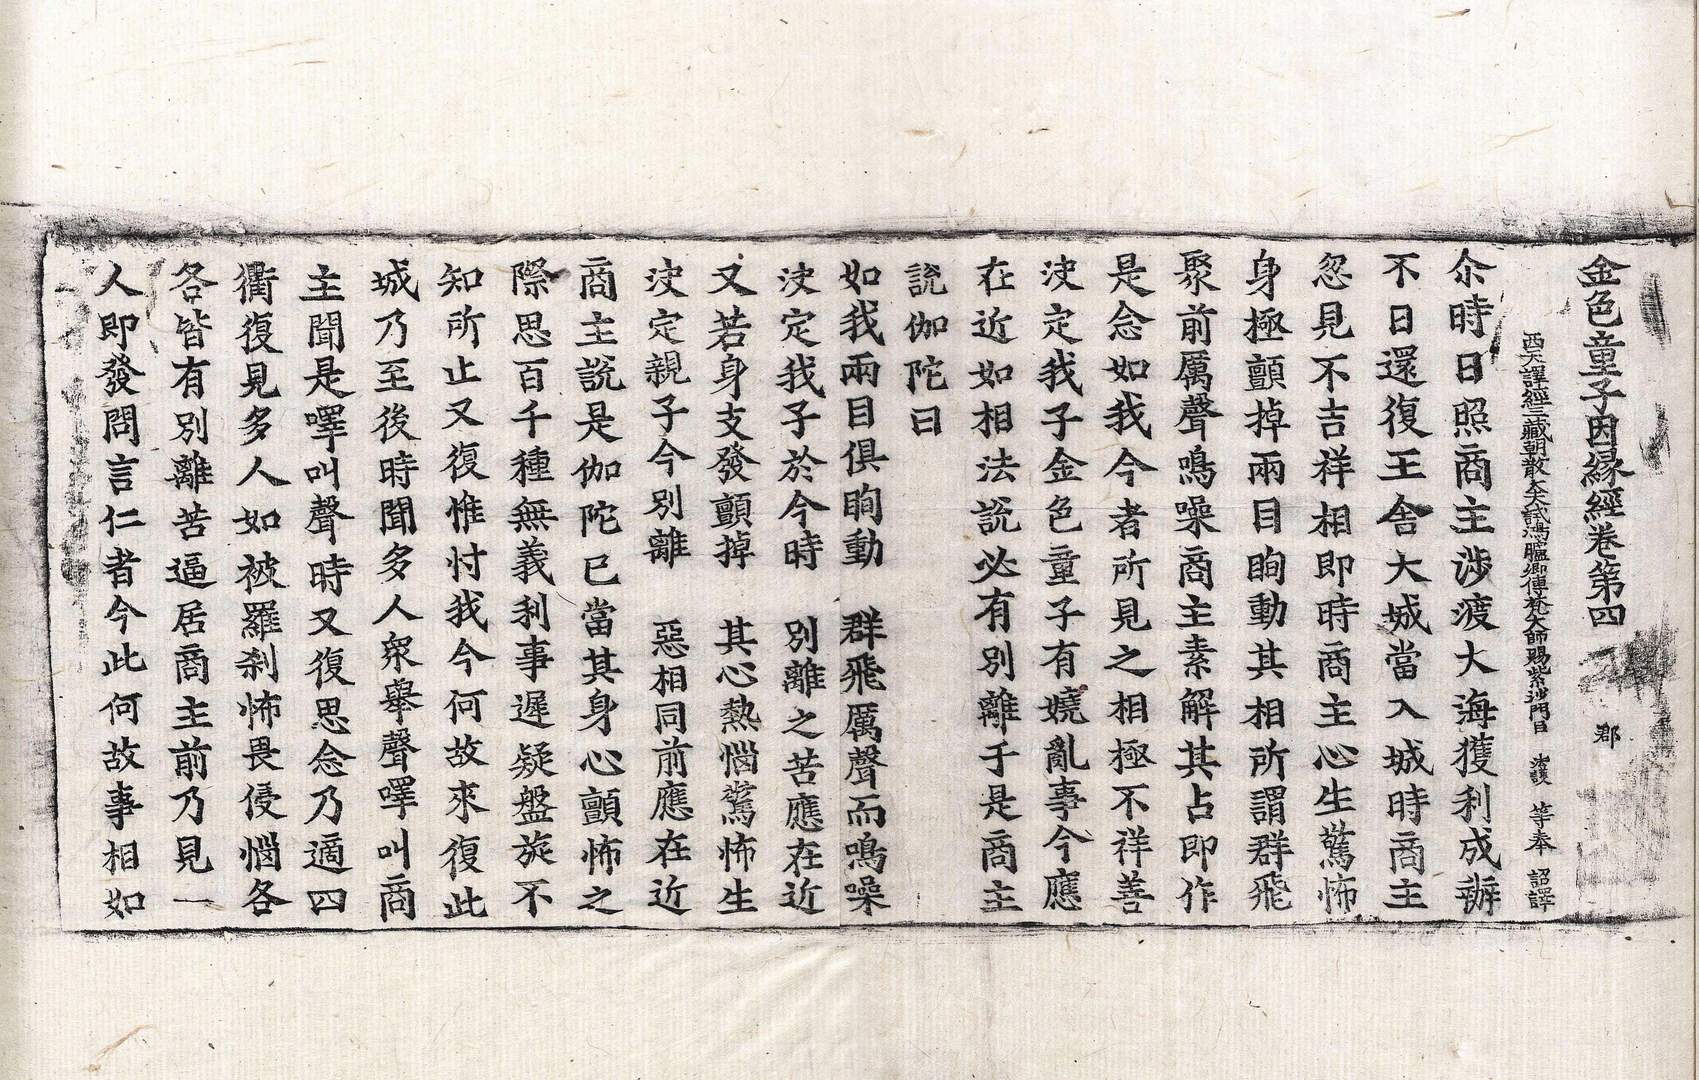 金色童子因縁經卷第四 郡
西天譯經三藏朝散大夫試鴻臚卿傳梵大師賜紫沙門臣 法護 等奉 詔譯
尒時日照商主涉渡大海獲利成辦
不日還復王舍大城當入城時商主
忽見不吉祥相即時商主心生驚怖
身極顫掉兩目眴動其相所謂群飛
聚前厲聲鳴噪商主素解其占即作
是念如我今者所見之相極不祥善
決定我子金色童子有嬈亂事今應
在近如相法說必有別離于是商主
說伽陀曰
如我兩目俱眴動 群飛厲聲而鳴噪
決定我子於今時 別離之苦應在近
又若身支發顫掉 其心熱惱驚怖生
決定親子今別離 惡相同前應在近
商主說是伽陀已當其身心顫怖之
際思百千種無義利事遲疑盤旋不
知所止又復惟忖我今何故來復此
城乃至後時聞多人衆舉聲㘁叫商
主聞是㘁叫聲時又復思念乃適四
衢復見多人如被羅刹怖畏侵惱各
各皆有別離苦逼居商主前乃見一
人即發問言仁者今此何故事相如